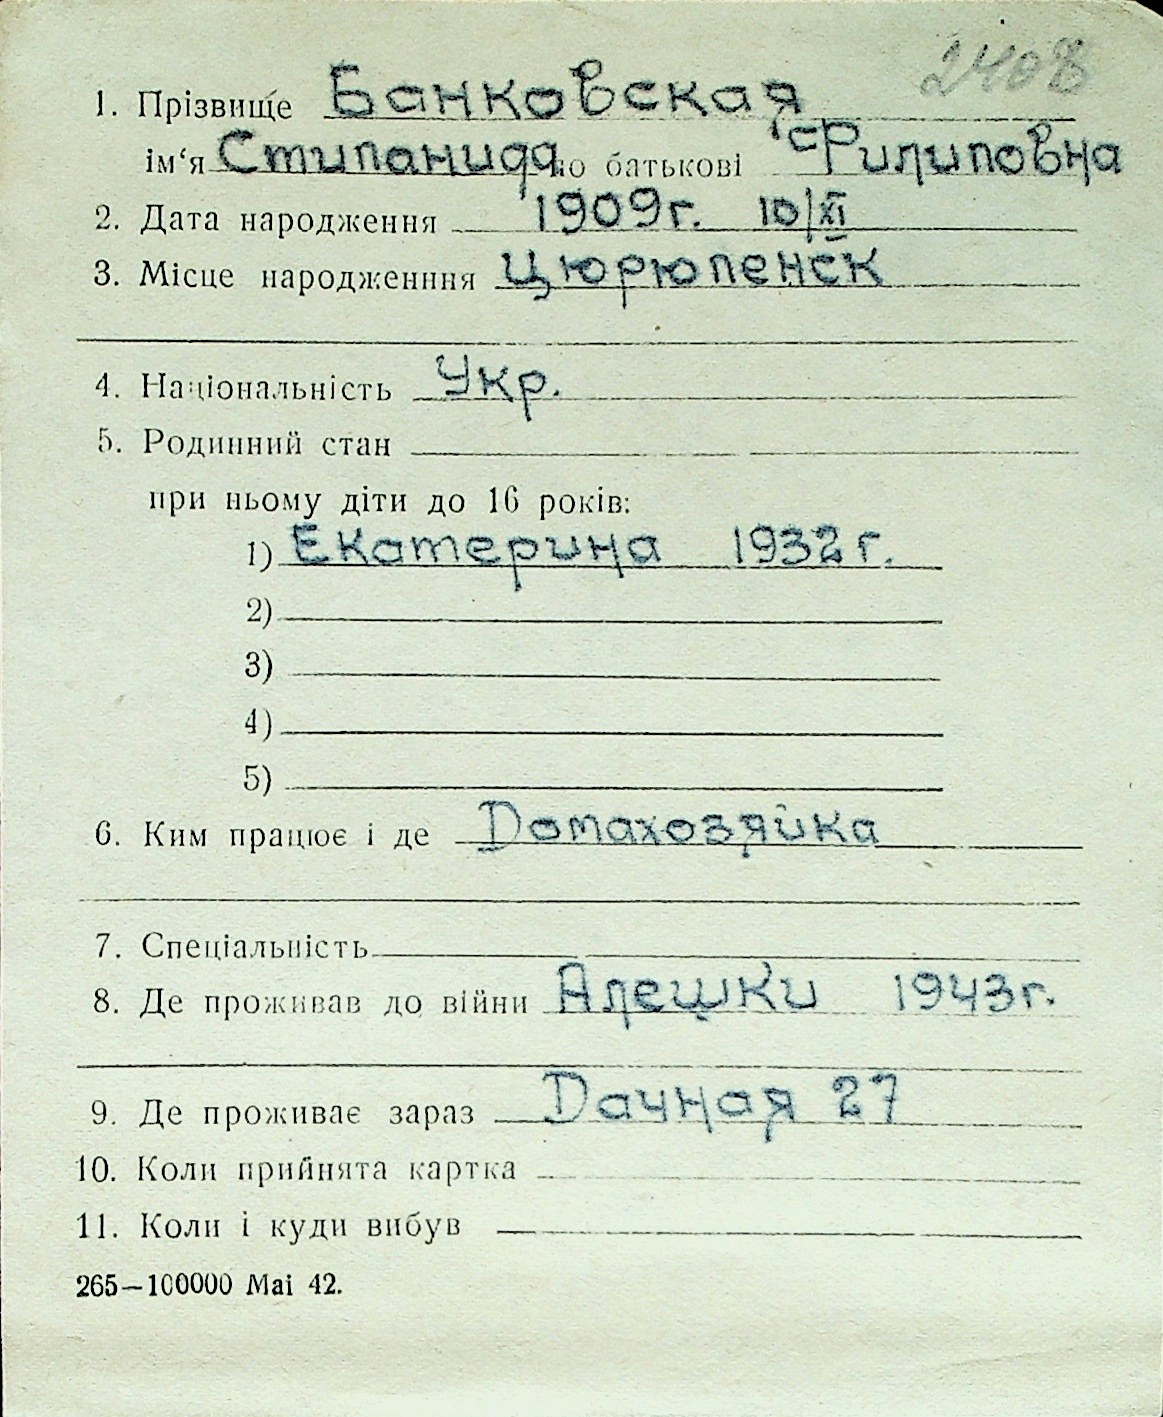 2408
1. Прізвище Банковская
ім‘я Стипанида по батькові Филиповна
2. Дата народження 1909г. 10/XI
3. Місце народженння Цюрюпенск
4. Національність Укр.
5. Родинний стан
при ньому діти до 16 років:
1) Екатерина 1932г.
2)
3)
4)
5)
6. Ким працює і де Домахозяйка
7. Спеціальність
8. Де проживав до війни Алешки 1943г.
9. Де проживає зараз Дачная 27
10. Коли прийнята картка
11. Коли і куди вибув
265—100000 Mai 42.